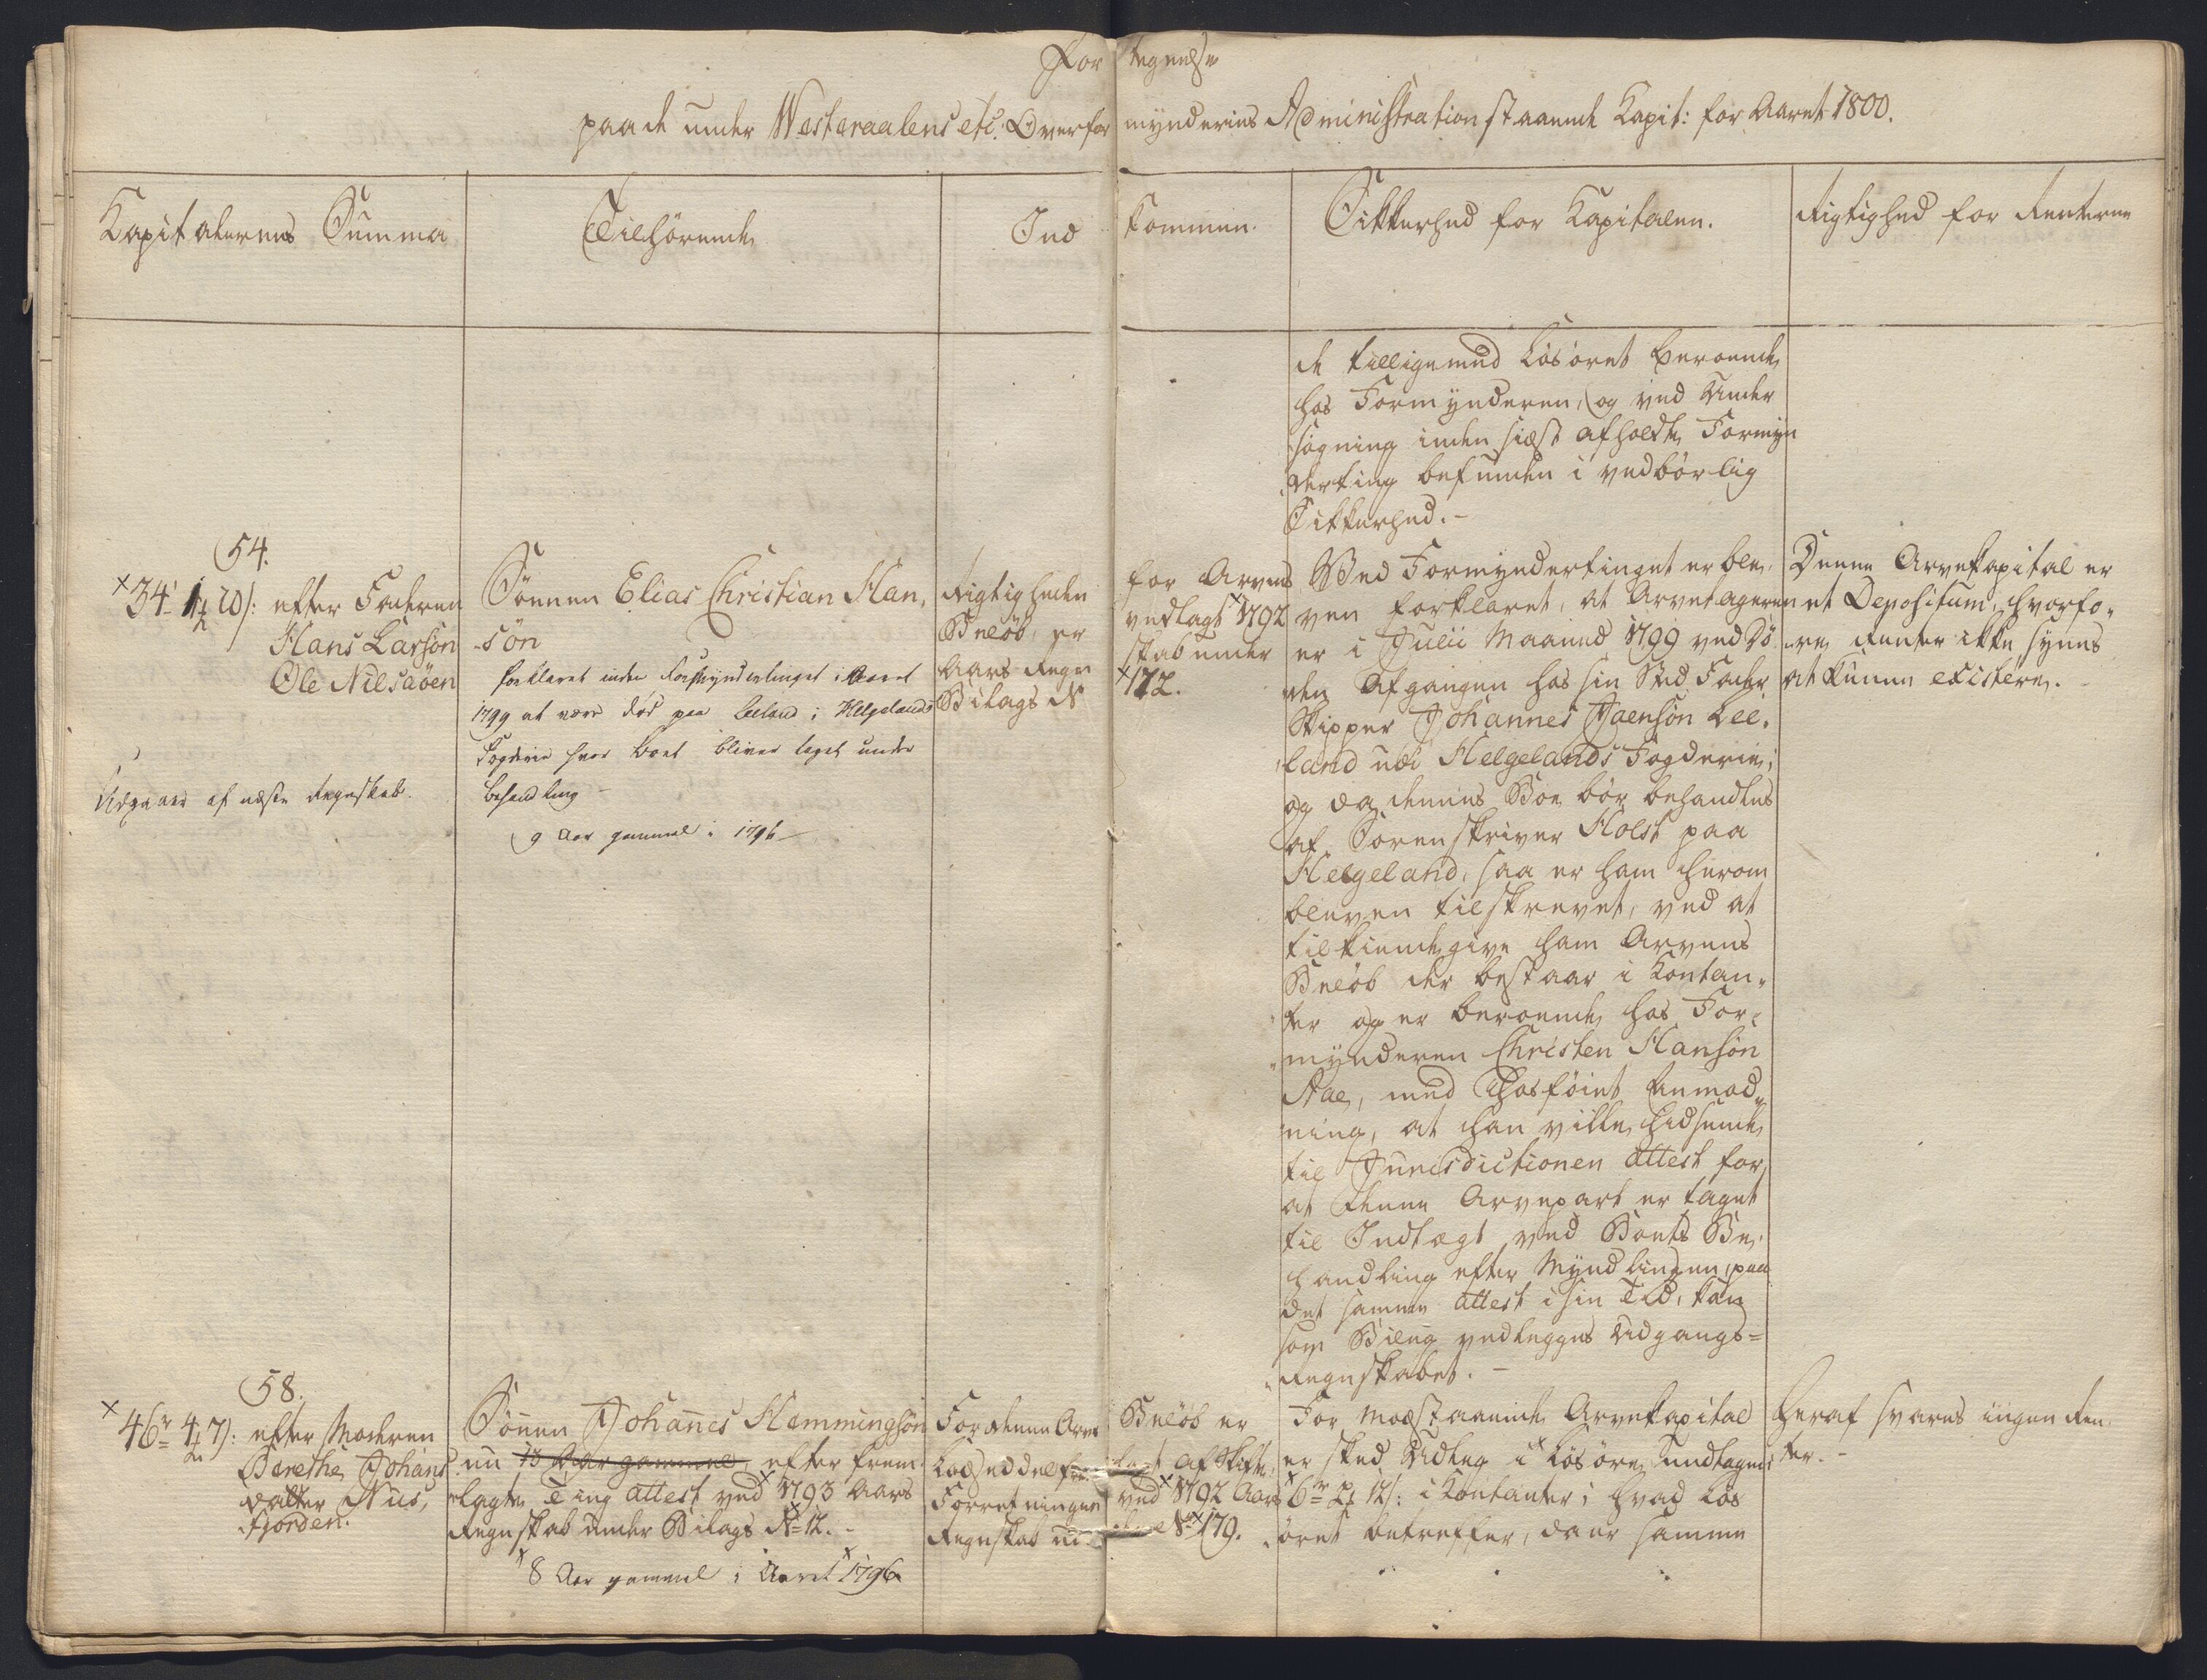 Fortegnelse
paa de under Westeraalens etc: Overformynderies Administration staaende Kapit: for Aaret 1800.
Kapitalernes Summa
Tilhörende
Indkommen.
Sikkerhed for Kapitalen.
Rigtighed for Renterne
de tilligemed Lösöret beroende
hos Formynderen, og ved Under
sögning inden sidst afholdte Formyn
derting befunden i vedbörlig
Sikkerhed.-
54.
34 1 20/: efter Faderen
Hans Larsön
Ole Nilsaöen
Udgaaer af næste Regnskab.
Sönnen Elias Christian Han,
-sön
forklaret inden Formynderlinget i Aaret
1799 at være död paa Leland i Helgelands
Fogderie hvor Boet bliver taget under
behandling -
9 Aar gammel i 1796
Rigtigheden
Belöb, er
Aars Regn
Bilags N
for Arvens
vedlagt 1792
skab under
172.
Ved Formyndertinget er ble,
ven forklaret, at Arvetageren
er i Julii Maaned 1799 ved Dö
den Afgangen hos sin Sted Fader
Skipper Johannes Jaensön Lee,
land udi Helgelands Fogderie;
og da dennes Boe bör behandles
af Sorenskriver Holst paa
Helgeland, saa er ham herom
bleven tilskrevet, ved at
tilkiendegive ham Arvens
Belöb der bestaar i Kontan,
ter og er beroende hos For,
mynderen Christen Hansön
Aae, med hosföiet Anmod,
ning, at han ville hidsende
til Jurisdictionen Attest for,
at denne Arvepart er taget
til Indtægt ved Boets Be,
handling efter Myndlingen, paa
det samme Attest i sin Tid, kan
som Bilag vedlegges Udgangs=
Regnskabet. -
Denne Arvekapital er
et Depositum, hvorfo,
re Renter ikke synes
at kunne existere. -
58.
46 4 7/: efter Moderen
Berethe Johans
datter Nus,
fjorden.
Sönnen Johanes Hemmingsön
nu 13 Aar gammel, efter frem
lagte Ting Attest ved 1793 Aars
Regnskab under Bilags No 12. -
8 Aar gammel i Aaret 1796
For denne Arvs
Lodseddel frem
Forretningen
Regnskab un
Belöb er
lagt af Skifte
ved 1792 Aars
No 179.
For modstaaende Arvekapital
er sked Udleg i Lösöre undtagen
6 2 12/: i Kontanter; hvad Lös
öret betreffer, da er samme
Heraf svares ingen Ren
ter. -